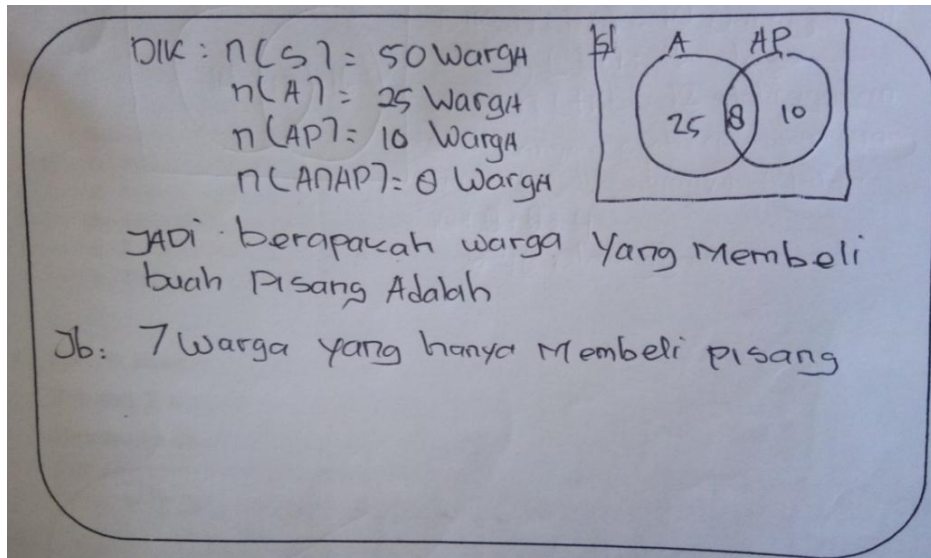 DIK : n(S) = 50 WargA
n(A) = 25 WargA
n(AP) = 10 WargA
n(A∩AP) = 8 WargA
S A AP
25 8 10
JADi berapakah warga Yang Membeli
buah Pisang Adalah
Jb: 7 Warga yang hanya Membeli pisang